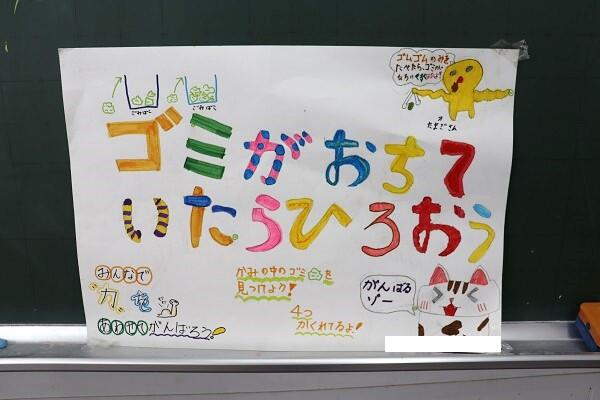 ゴムゴムのみを
ごみばこ
ごみばこ
たまごさん
ゴミがおちて
いたらひろおう
みんなで
かみの中のゴミを
見つけよう!
力
4つ
かくれてるよ!
がんばる
ゾー
あわせてがんばろう!